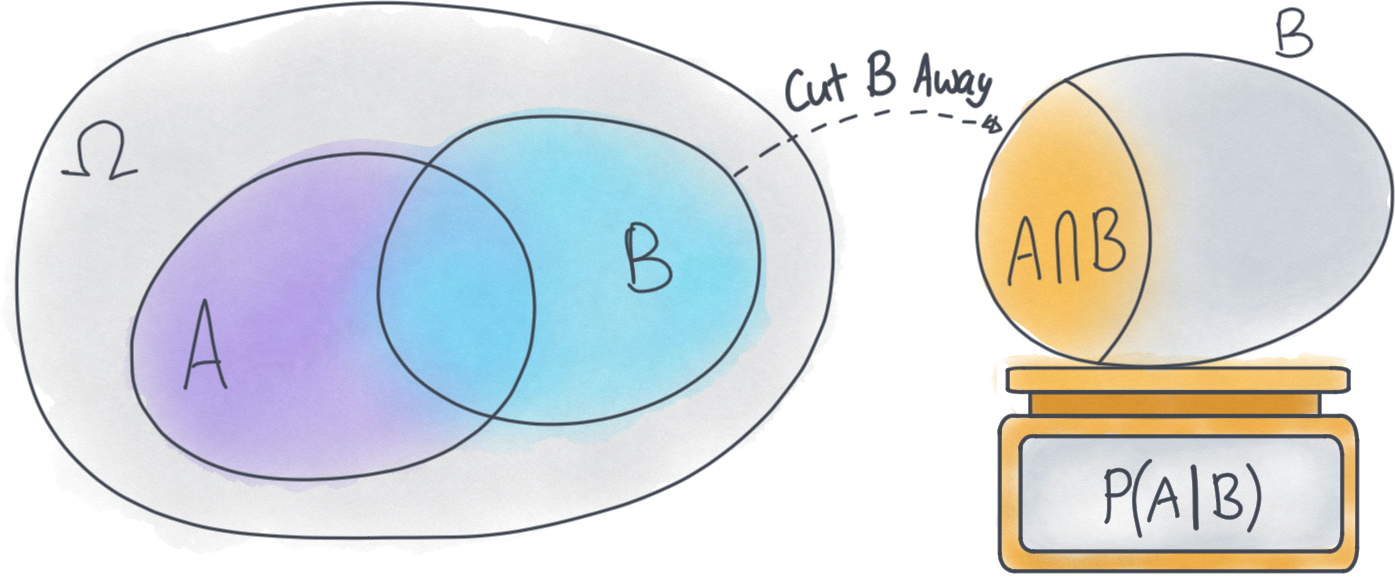 Ω
A
B
Cut B Away
B
A∩B
P(A|B)